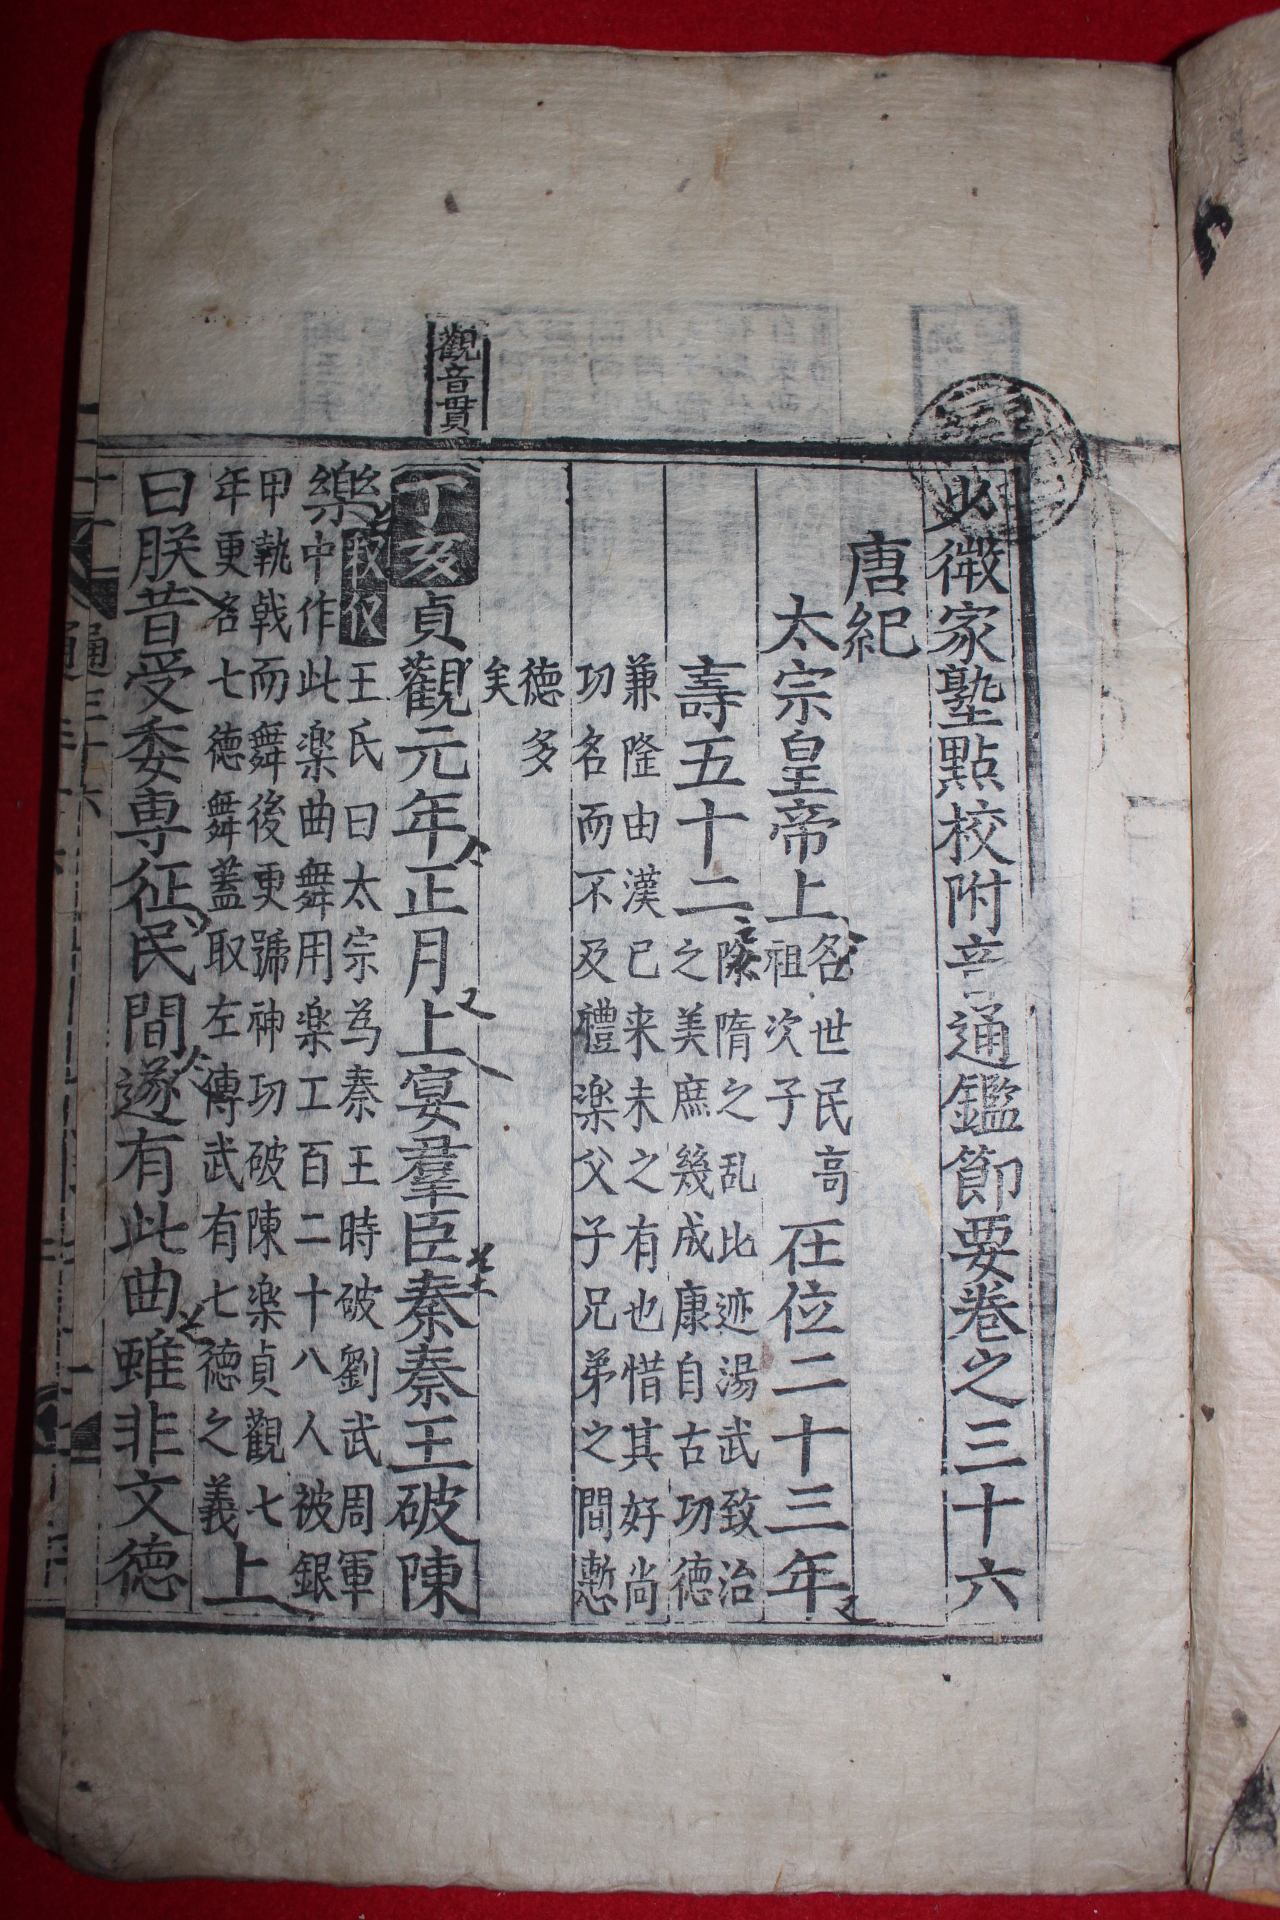 少微家塾點校附音通鑑節要卷之三十六
唐紀
太宗皇帝上
名世民高
祖次子
在位二十三年
壽五十二
除隋之乱比迹湯武致治
之美庶幾成康自古功德
兼隆由漢已来未之有也惜其好尚
功名而不及禮楽父子兄弟之間慙
德多
矣
觀音貫
丁亥
貞觀元年正月上宴羣臣奏秦王破陳
樂
釈仪
王氏曰太宗為秦王時破劉武周軍
中作此楽曲舞用楽工百二十八人被銀
甲執戟而舞後更號神功破陳楽貞觀七
年更名七德舞蓋取左傳武有七德之義
上
曰朕昔受委専征民間遂有此曲雖非文德
通三十六